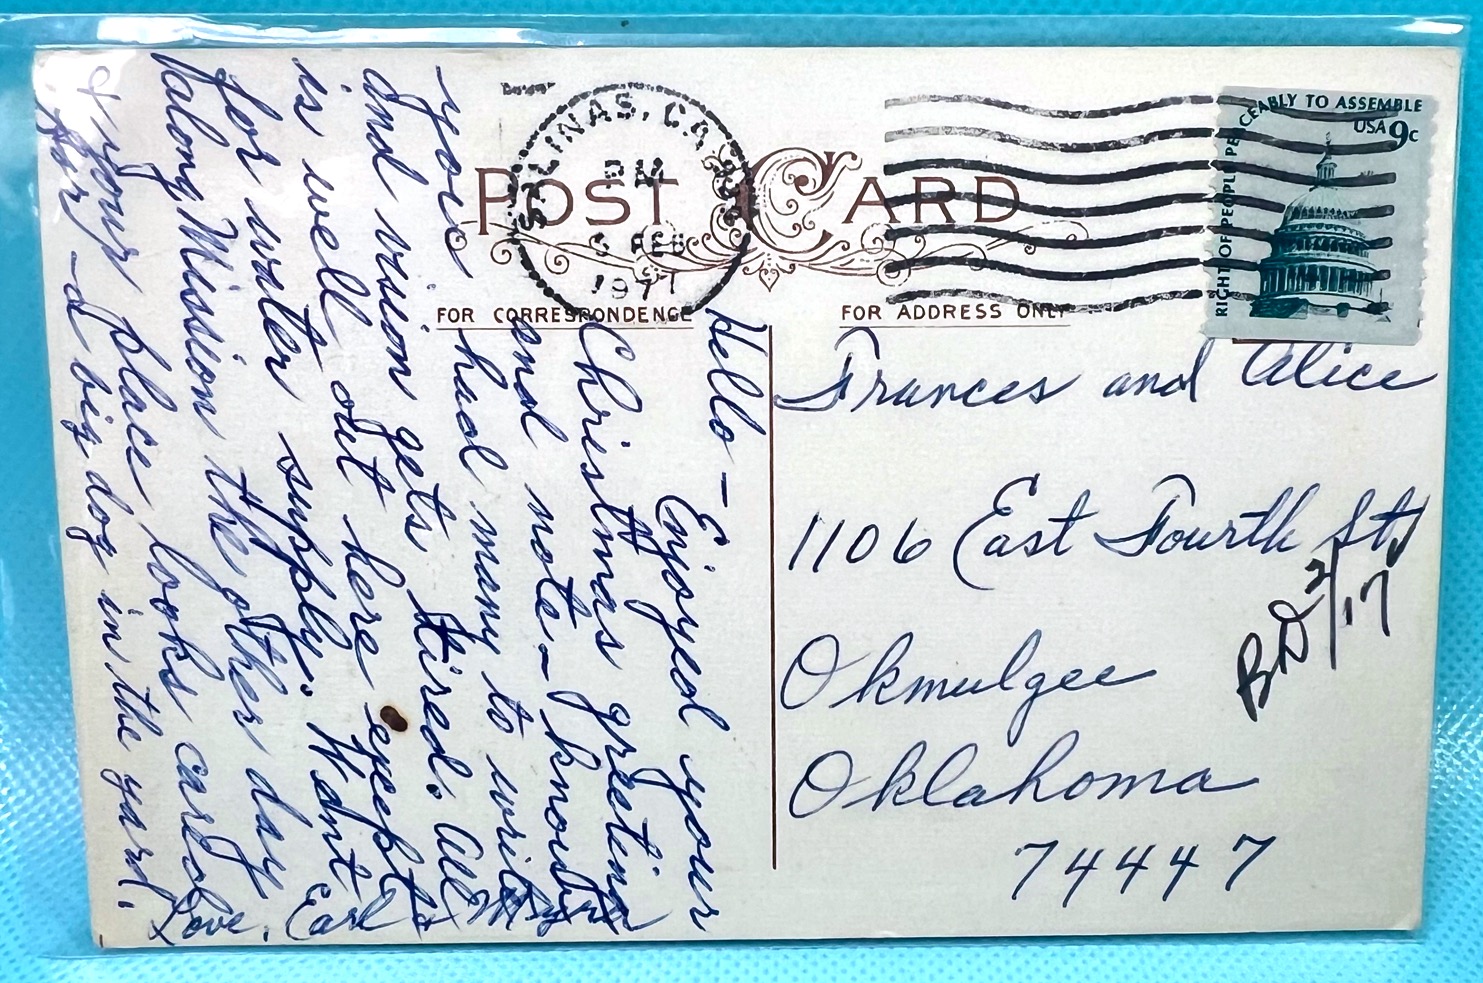 SALINAS, CA
PM
5 FEB
1977
POST CARD
FOR CORRESPONDENCE
FOR ADDRESS ONLY
RIGHT OF PEOPLE PEACEABLY TO ASSEMBLE
USA 9c
Hello - Enjoyed your
Christmas greeting
and note - know
you had many to write
and vision gets tired. All
is well out here except
for water supply. Went
along Mission the other day
& your place looks cared
for - a big dog in the yard.
Love, Earl &
Frances and Alice
1106 East Fourth St,
Okmulgee
Oklahoma
74447
BD 2/17